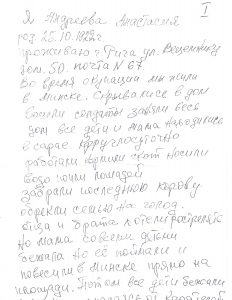 I
Я Андреева Анастасия
роз. 25.10.1929г.
проживаю г Рига ул.
дом. 50. почта N 67
Во время окупации мы жили
в Минске. Скрывались в дом
вошли солдаты заняли весь
дом все дети и мама находились
в сарае круглосуточно
работали кормили скот носили
воду поили лошадей
забрали последнюю корову
обрекли семью на голод.
и брата хотели расстрелять
Но мама со всеми детьми
бежала но её поймали и
повесили в Минске прямо на
площади. Потом все дети бежали